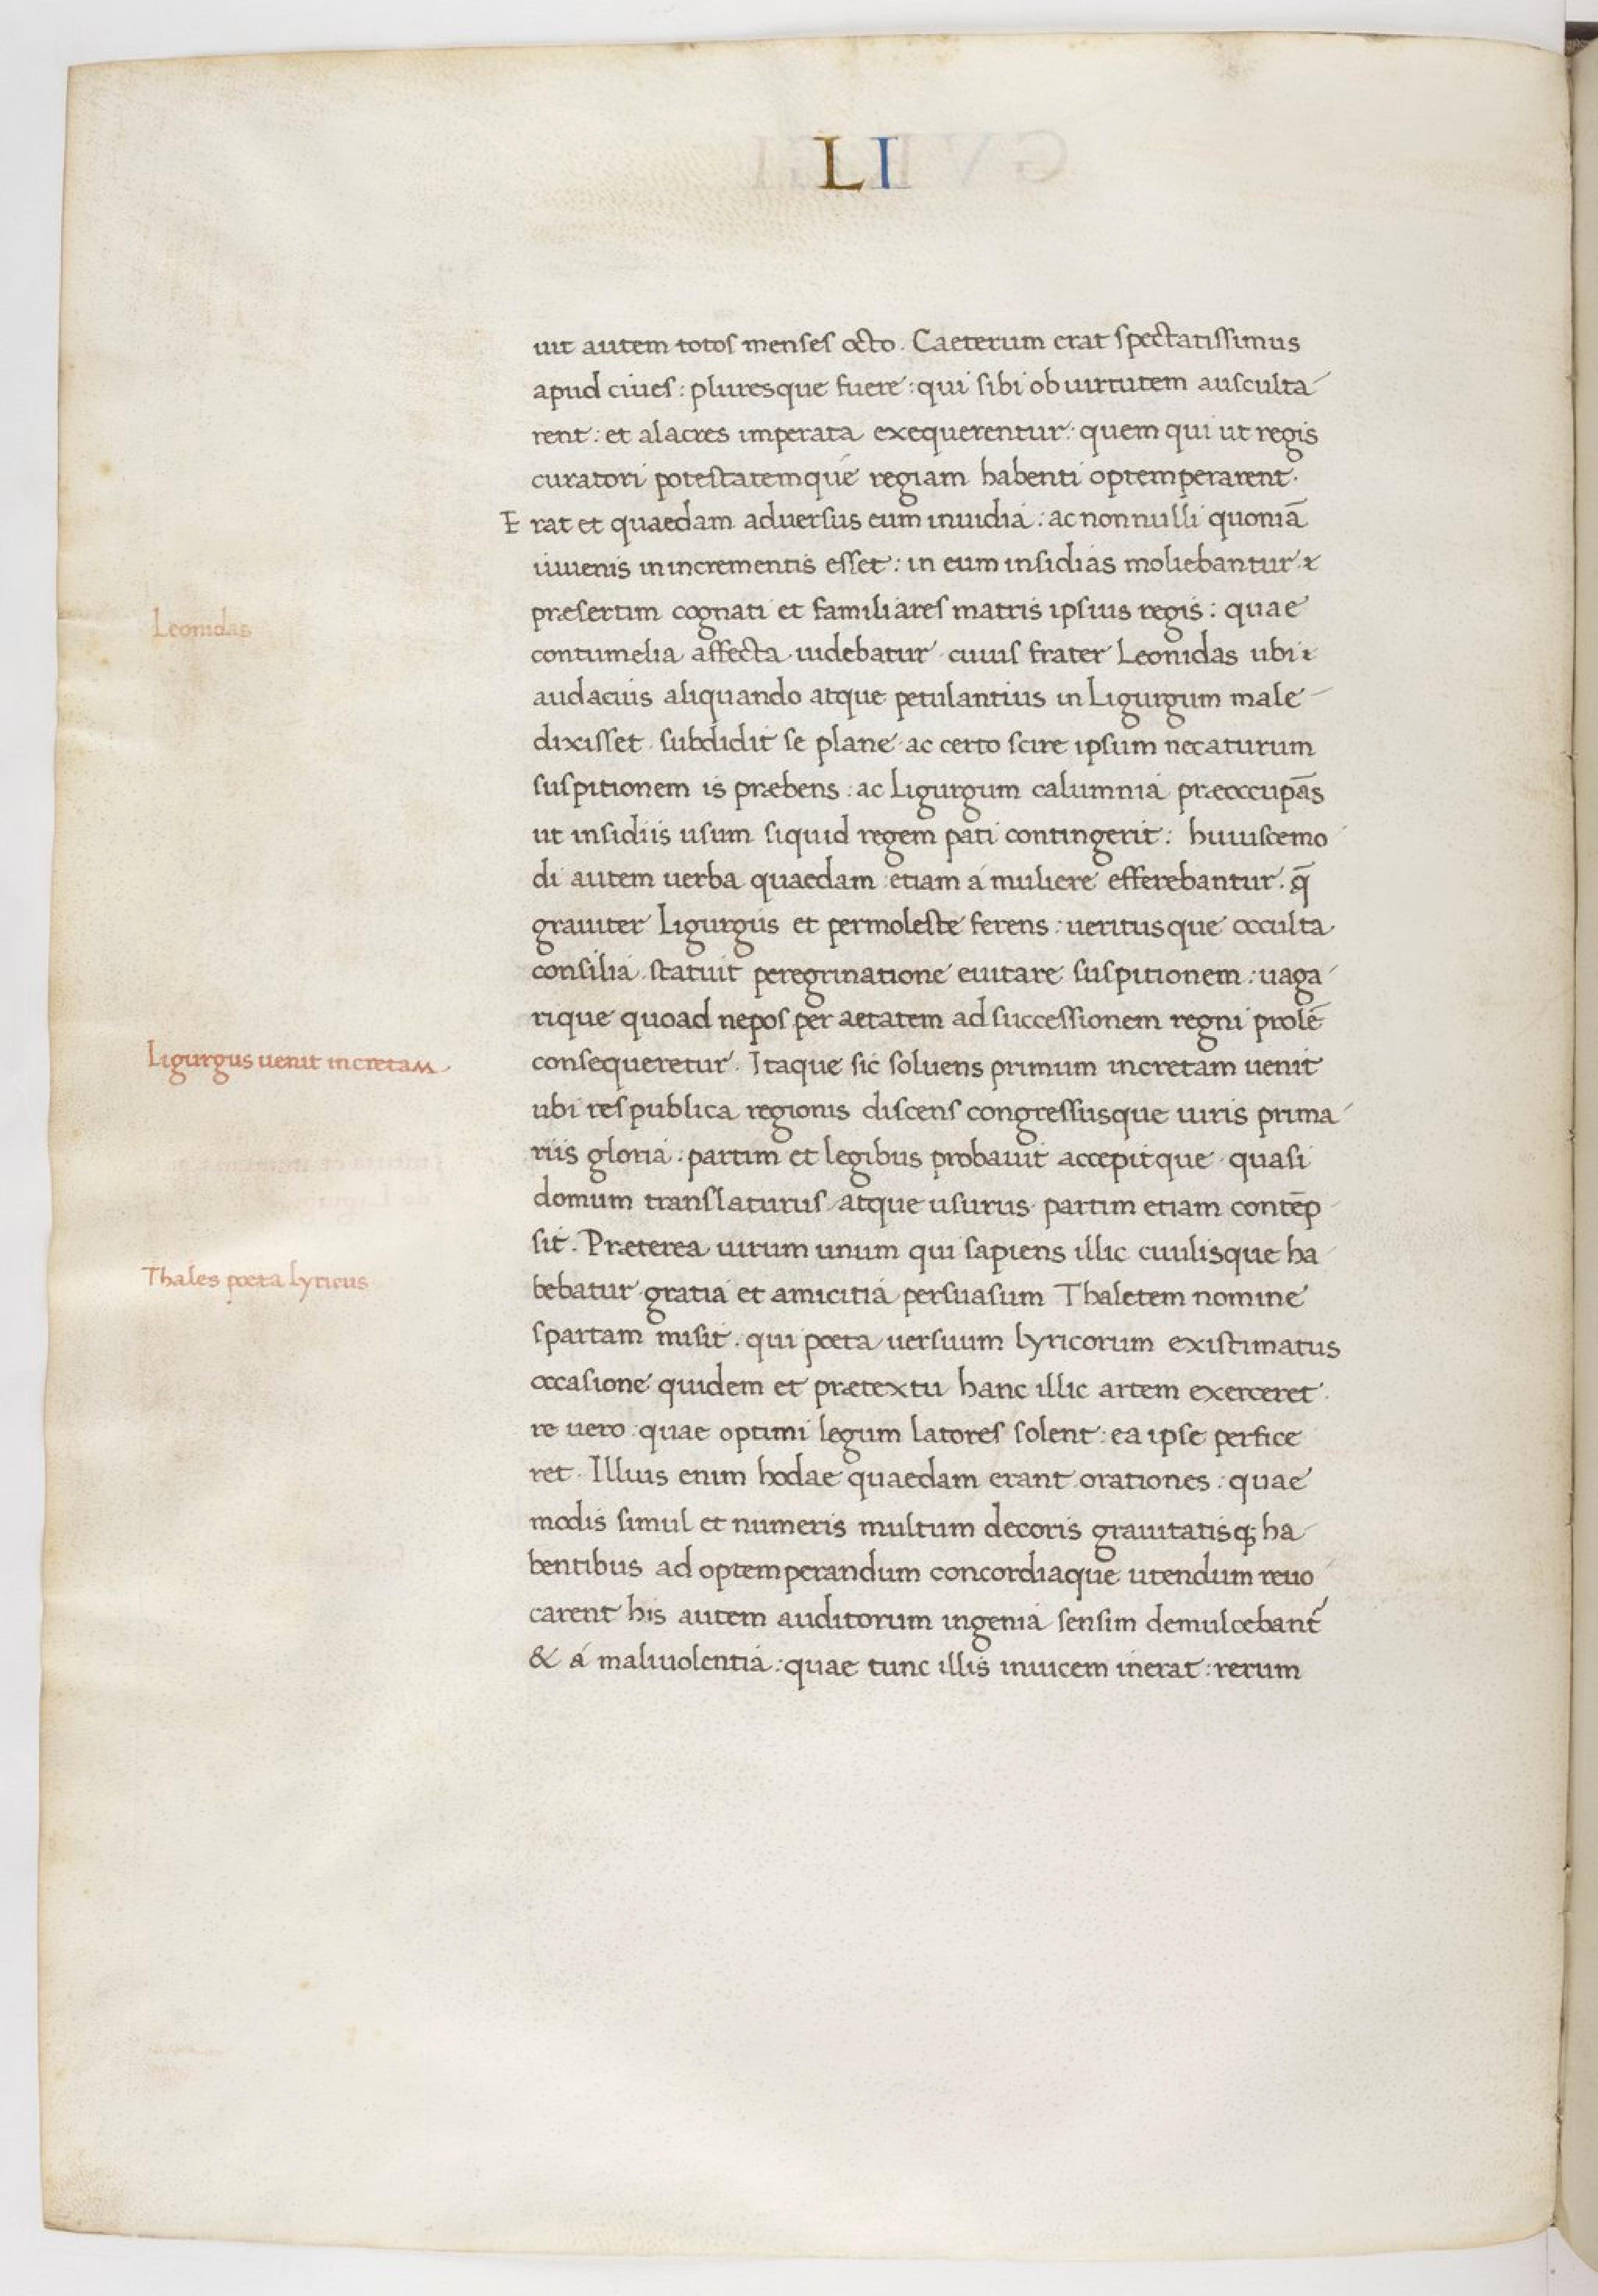 LI
uit autem totos menses octo. Caeterum erat spectatissimus
apud ciues: pluresque fuere: qui sibi ob uirtutem ausculta
rent: et alacres imperata exequerentur: quem qui ut regis
curatori potestatemque regiam habenti optemperarent.
Erat et quaedam aduersus eum inuidia: ac nonnulli quoniā
iuuenis in incrementis esset: in eum insidias moliebantur &
præsertim cognati et familiares matris ipsius regis: quae
Leonidas
contumelia affecta uidebatur cuius frater Leonidas ubi &
audacius aliquando atque petulantius in Ligurgum male
dixisset. subdidit se plane ac certo scire ipsum necaturum
suspitionem is præbens: ac Ligurgum calumnia præoccupās
ut insidiis usum siquid regem pati contingerit: huiuscemo
di autem uerba quaedam etiam á muliere efferebantur. q̄
grauiter Ligurgus et permoleste ferens: ueritusque occulta
consilia statuit peregrinatione euitare suspitionem: uaga
rique quoad nepos per aetatem ad successionem regni prolē
Ligurgus uenit in cretam
consequeretur. Itaque sic soluens primum in cretam uenit
ubi res publica regionis discens congressusque uiris prima
riis gloria: partim et legibus probauit accepitque quasi
domum translaturus atque usurus partim etiam contēp
sit. Præterea uirum unum qui sapiens illic ciuilisque ha
Thales poeta lyricus
bebatur gratia et amicitia persuasum Thaletem nomine
spartam misit. qui poeta uersuum lyricorum existimatus
occasione quidem et prætextu hanc illic artem exerceret
re uero quae optimi legum latores solent: ea ipse perfice
ret. Illius enim hodae quaedam erant orationes: quae
modis simul et numeris multum decoris grauitatisq; ha
bentibus ad optemperandum concordiaque utendum reuo
carent his autem auditorum ingenia sensim demulcebant᷒
& á maliuolentia: quae tunc illis inuicem inerat: rerum